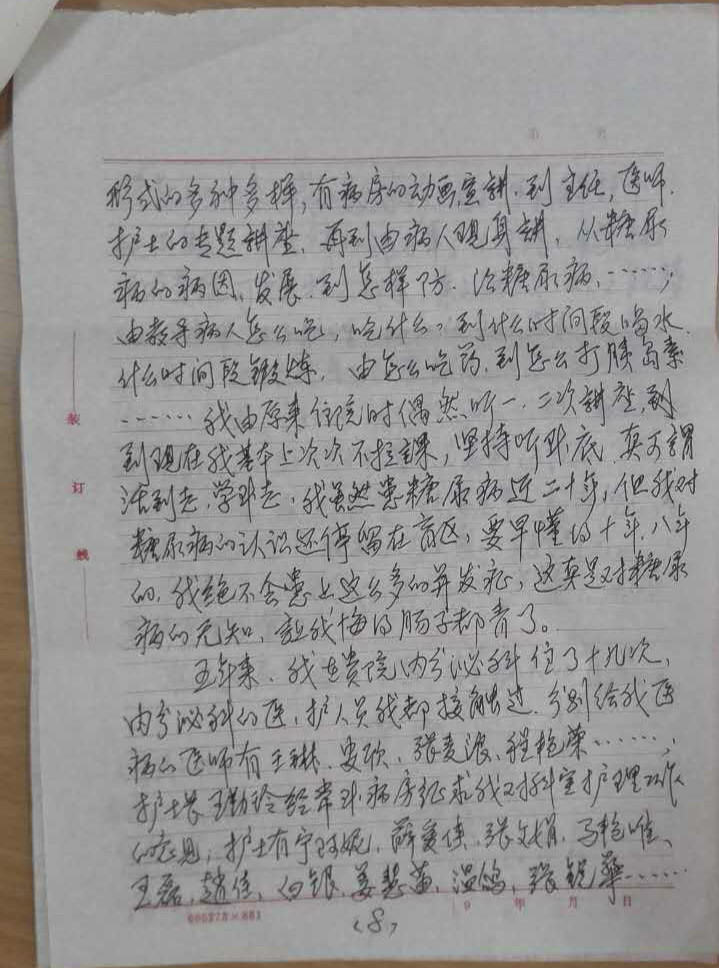 第 页
形式的多种多样,有病房的动画宣讲.到主任,医师.
护士的专题讲座.再到由病人现身讲,从糖尿
病的病因、发展.到怎样防.治糖尿病,……;
由教导病人怎么吃,吃什么,到什么时间段喝水.
什么时间段锻炼.由怎么吃药.到怎么打胰岛素
……我由原来住院时偶然听一.二次讲座,到
到现在我基本上次次不拉课,坚持听到底.真可谓
活到老,学到老,我虽然患糖尿病近二十年,但我对
糖尿病的认识还停留在盲区,要早懂的十年.八年
的.我绝不会患上这么多的并发症,这真是对糖尿
病的无知,让我悔的肠子都青了。
五年来.我在贵院内分泌科住了十九次,
内分泌科的医,护人员我都接触过.分别给我医
病的医师有王琳.安欣.张麦浪.程艳荣……;
护士长王勤玲经常到病房征求我对科室护理工作
的意见;护士有宁、薛、张文娟,马艳
王磊.赵佳.白银.姜慧、温鸽,张锐华……
装
订
线
19 年 月 日
(8)